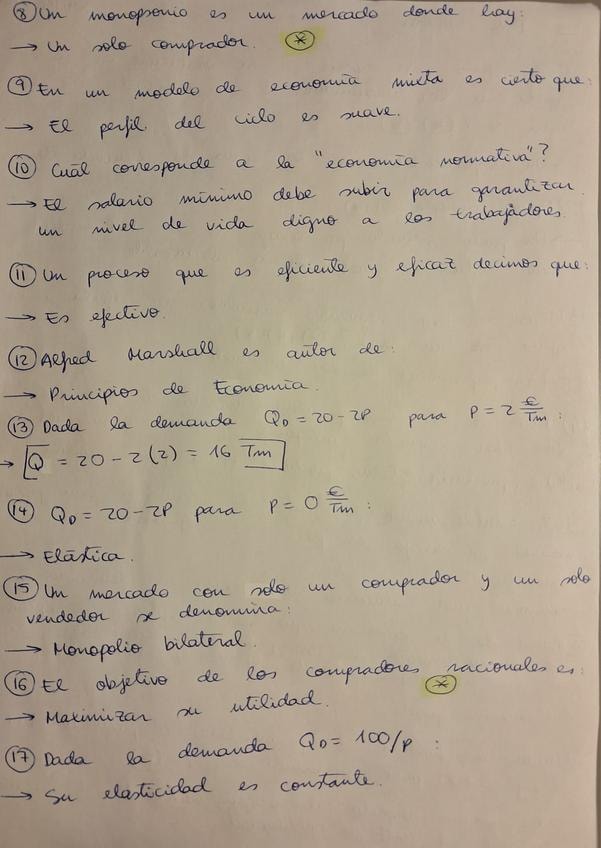 ⑧ Un monopsonio es un mercado donde hay:
→ Un solo comprador. *
⑨ En un modelo de economía mixta es cierto que:
→ El perfil del ciclo es suave.
⑩ Cuál corresponde a la "economía normativa"?
→ El salario mínimo debe subir para garantizar
un nivel de vida digno a los trabajadores.
⑪ Un proceso que es eficiente y eficaz decimos que:
→ Es efectivo.
⑫ Alfred Marshall es autor de:
→ Principios de Economía.
⑬ Dada la demanda Q_D = 20 - 2P para P = 2 €/Tm :
→ Q = 20 - 2(2) = 16 Tm
⑭ Q_D = 20 - 2P para P = 0 €/Tm :
→ Elástica.
⑮ Un mercado con solo un comprador y un solo
vendedor se denomina:
→ Monopolio bilateral.
⑯ El objetivo de los compradores racionales es:
→ Maximizar su utilidad. *
⑰ Dada la demanda Q_D = 100/P :
→ Su elasticidad es constante.